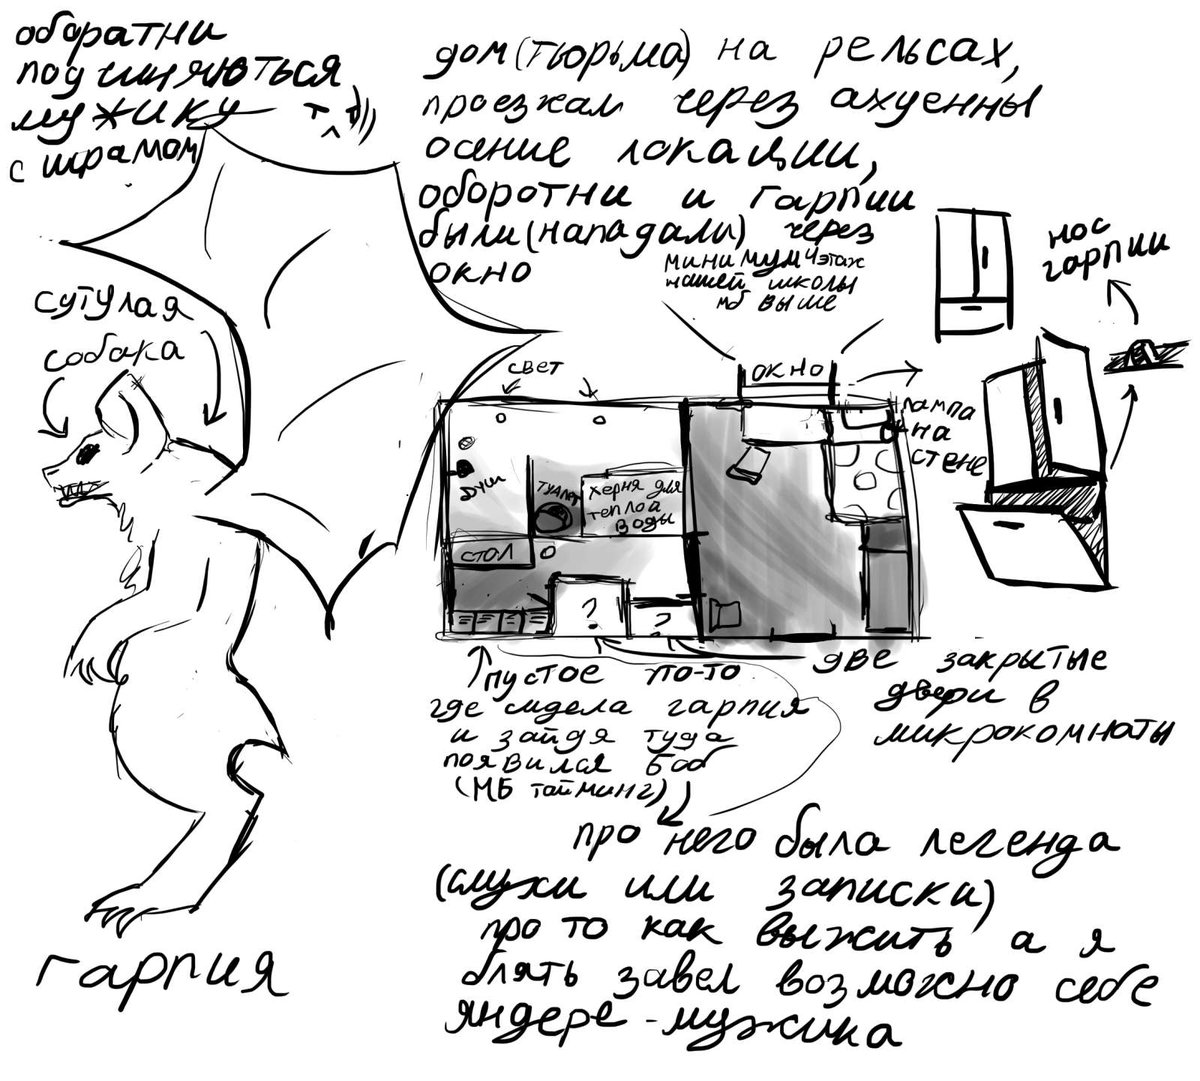 оборатни
подчиняються
мужику
с шрамом
дом(тюрьма) на рельсах,
проезжал через ахуенны
осение локации,
оборотни и гарпии
были(нападали) через
окно
минимум 4 этаж
нашей школы
мб выше
нос
гарпии
сутулая
собака
свет
окно
лампа
на
стене
душ
туалет
херня для
теплой
воды
стол
?
?
пустое
где сидела гарпия
и зайдя туда
появился боб
(мб тайминг)
две закрытые
двери в
микрокомнаты
про него была легенда
(слухи или записки)
про то как выжить а я
блять завел возможно себе
яндере-мужика
гарпия